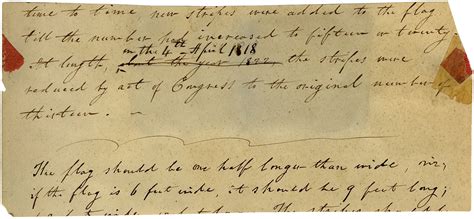 time to time new stripes were added to the flag
till the number had increased to fifteen or twenty.
on the 4th April 1818
At length, about the year 1822, the stripes were
reduced by act of Congress to the original number of
thirteen. —
The flag should be one half longer than wide, viz;
if the flag is 6 feet wide, it should be 9 feet long;